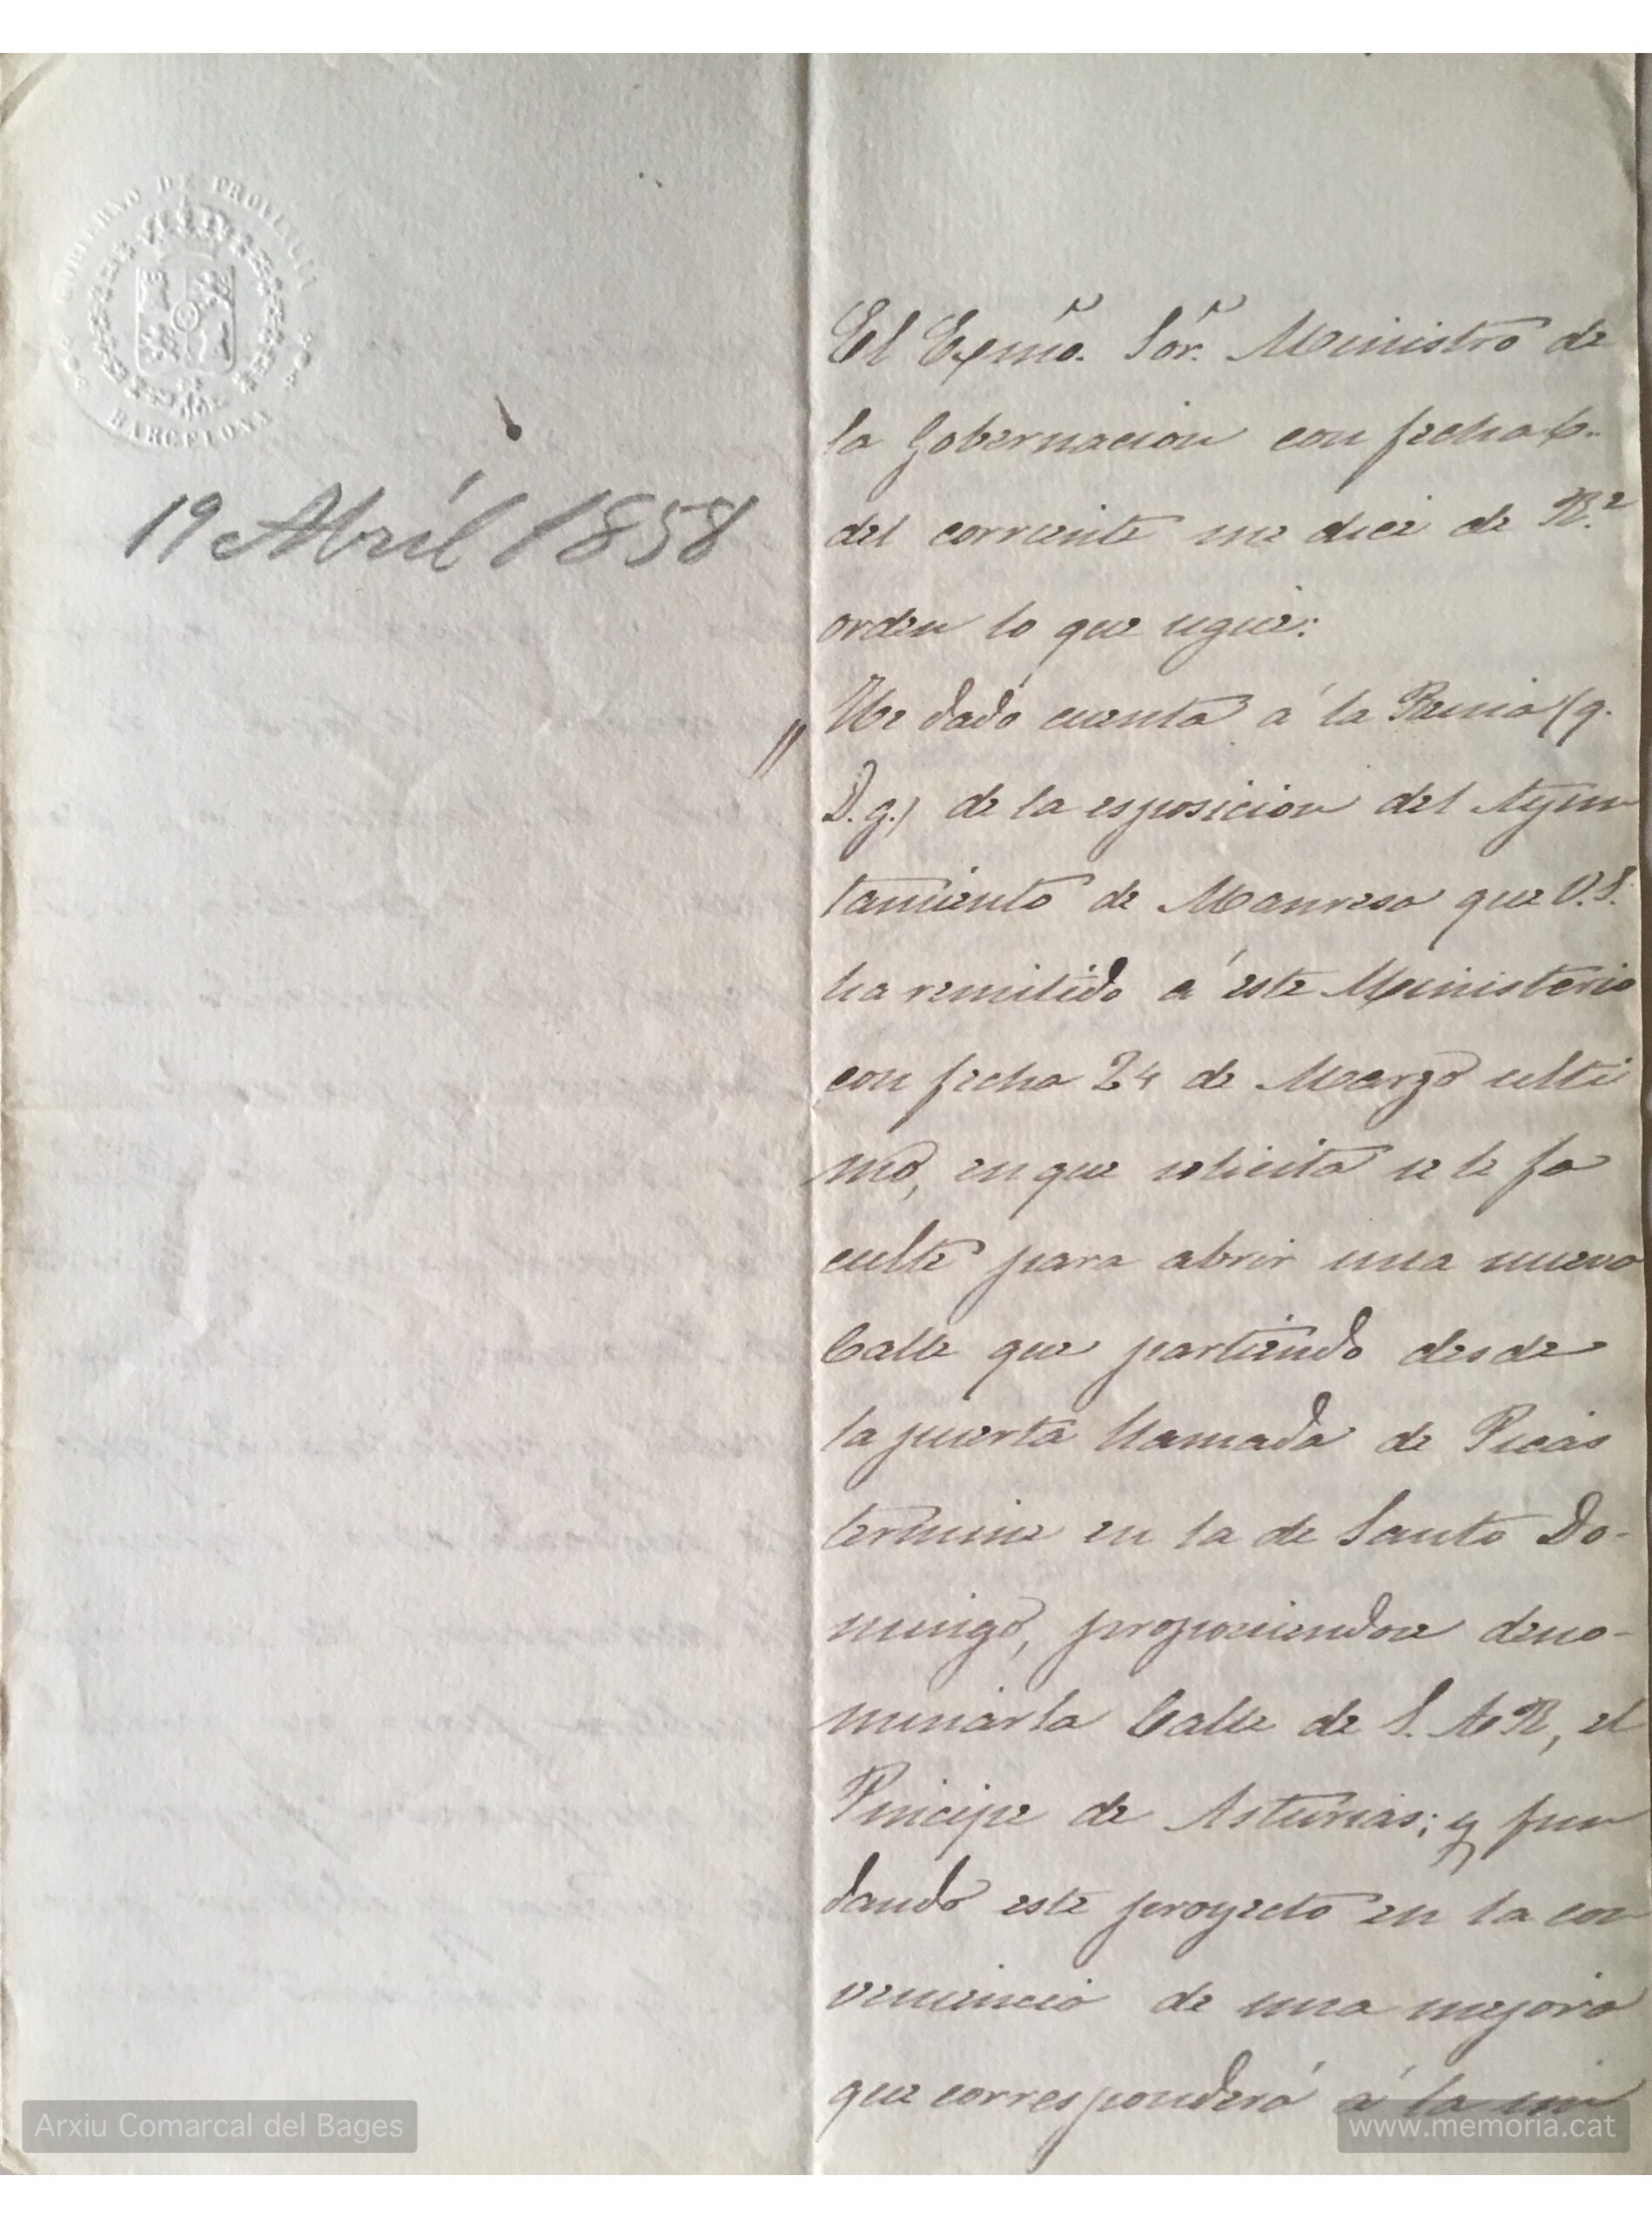 GOBIERNO DE PROVINCIA
BARCELONA
19 Abril 1858
El Exmo. Sor. Ministro de
la Gobernacion con fecha 6..
del corriente me dice de R.l
orden lo que sigue:
"He dado cuenta á la Reina (q.
D. g.) de la esposicion del Ayun
tamiento de Manresa que V.S.
ha remitido á este Ministerio
con fecha 24 de Marzo ulti
mo, en que solicita se le fa
culte para abrir una nueva
Calle que partiendo desde
la puerta llamada de Picas
termine en la de Santo Do-
mingo, proponiendose deno-
minarla Calle de S. A. R, el
Principe de Asturias; y fun
dando este proyecto en la con
veniencia de una mejora
que corresponderá á la im
Arxiu Comarcal del Bages
www.memoria.cat